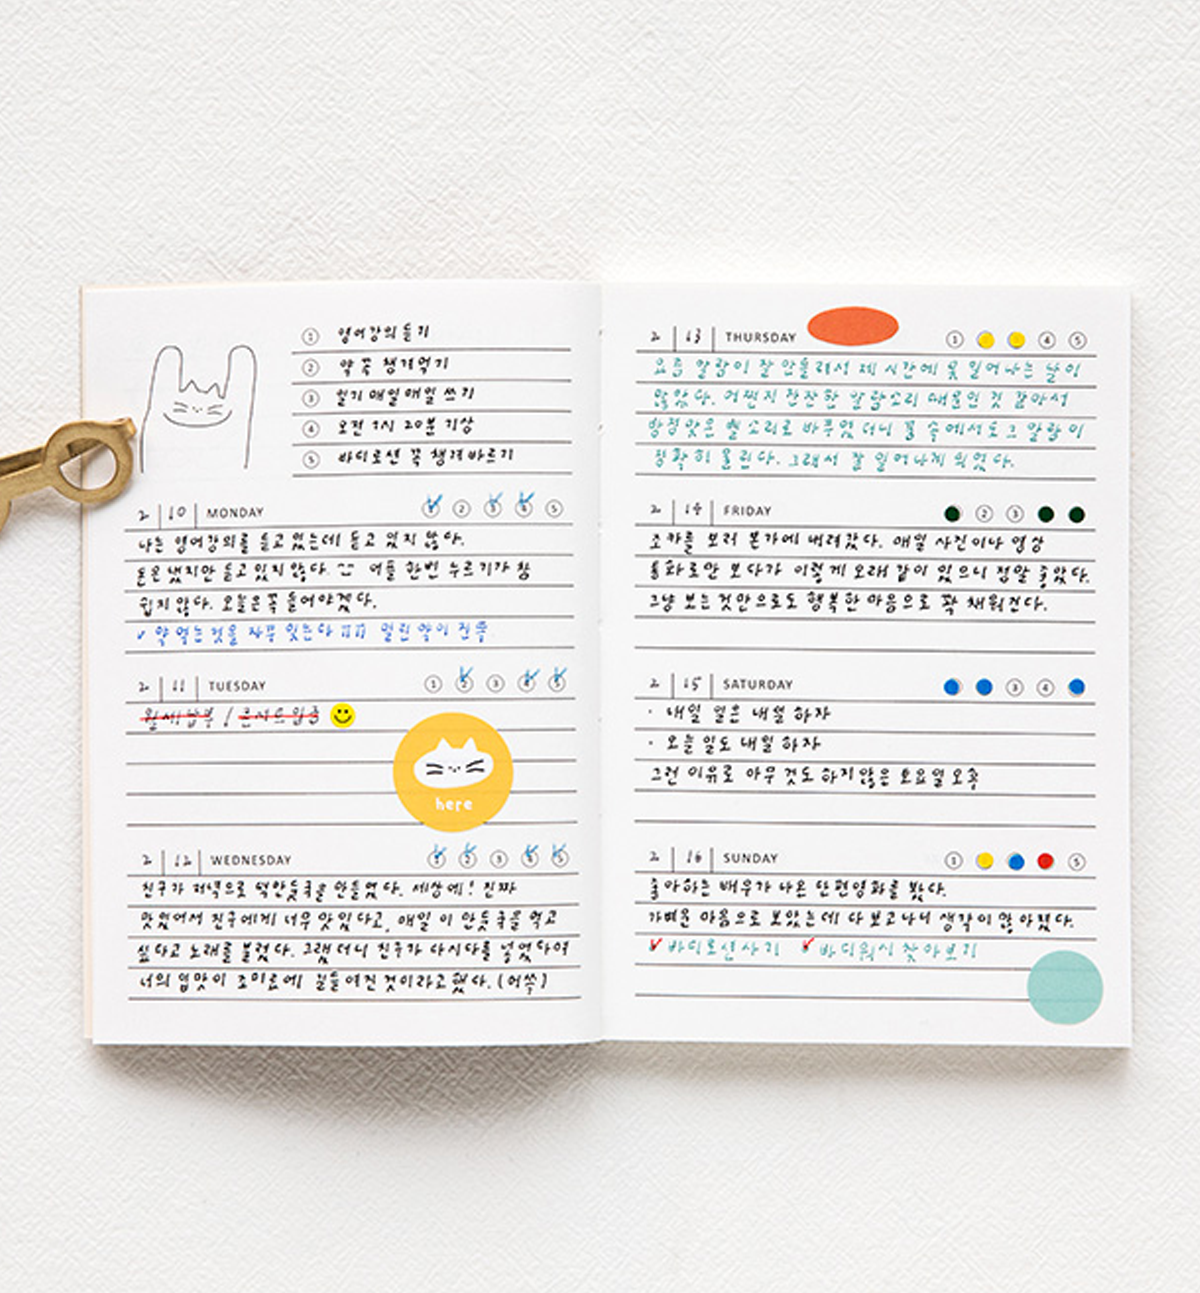 ① 영어강의 듣기
② 약 꼭 챙겨먹기
③ 일기 매일매일 쓰기
④ 오전 7시 20분 기상
⑤ 바디로션 꼭 챙겨바르기
2 10 MONDAY ① ② ③ ④ ⑤
나는 영어강의를 듣고 있는데 듣고 있지 않다.
돈은 냈지만 듣고 있지 않다. 어플 한번 누르기가 참
쉽지 않다. 오늘은 꼭 들어야겠다.
✓ 약 먹는 것을 자꾸 잊는다 ㅠㅠ 밀린 약이 잔뜩
2 11 TUESDAY ① ② ③ ④ ⑤
월세납부 / 콘서트입금
here
2 12 WEDNESDAY ① ② ③ ④ ⑤
친구가 저녁으로 떡만둣국을 만들었다. 세상에! 진짜
맛있어서 친구에게 너무 맛있다고, 매일 이 만둣국을 먹고
싶다고 노래를 불렀다. 그랬더니 친구가 다시다를 넣었다며
너의 입맛이 조미료에 길들여진 것이라고 했다. (머쓱)
2 13 THURSDAY ① ④ ⑤
요즘 알람이 잘 안들려서 제 시간에 못 일어나는 날이
많았다. 어쩐지 잔잔한 알람소리 때문인 것 같아서
방정맞은 벨 소리로 바꾸었더니 꿈 속에서도 그 알람이
정확히 울린다. 그래서 잘 일어나게 되었다.
2 14 FRIDAY ② ③
조카를 보러 본가에 내려갔다. 매일 사진이나 영상
통화로만 보다가 이렇게 오래 같이 있으니 정말 좋았다.
그냥 보는 것만으로도 행복한 마음으로 꽉 채워진다.
2 15 SATURDAY ③ ④
· 내일 일은 내일 하자
· 오늘 일도 내일 하자
그런 이유로 아무 것도 하지 않은 토요일 오후
2 16 SUNDAY ① ⑤
좋아하는 배우가 나온 단편영화를 봤다.
가벼운 마음으로 보았는데 다 보고나니 생각이 많아졌다.
✓ 바디로션 사기 ✓ 바디워시 찾아보기